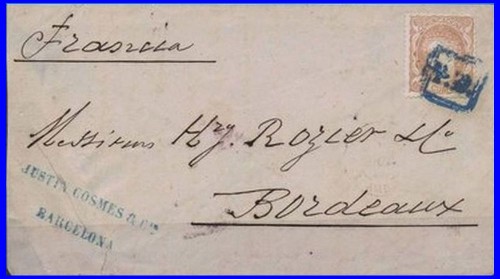 Francia
P.D.
Messieurs Hry. Rozier & Ce
Bordeaux
JUSTIN COSMES & Cie
BARCELONA